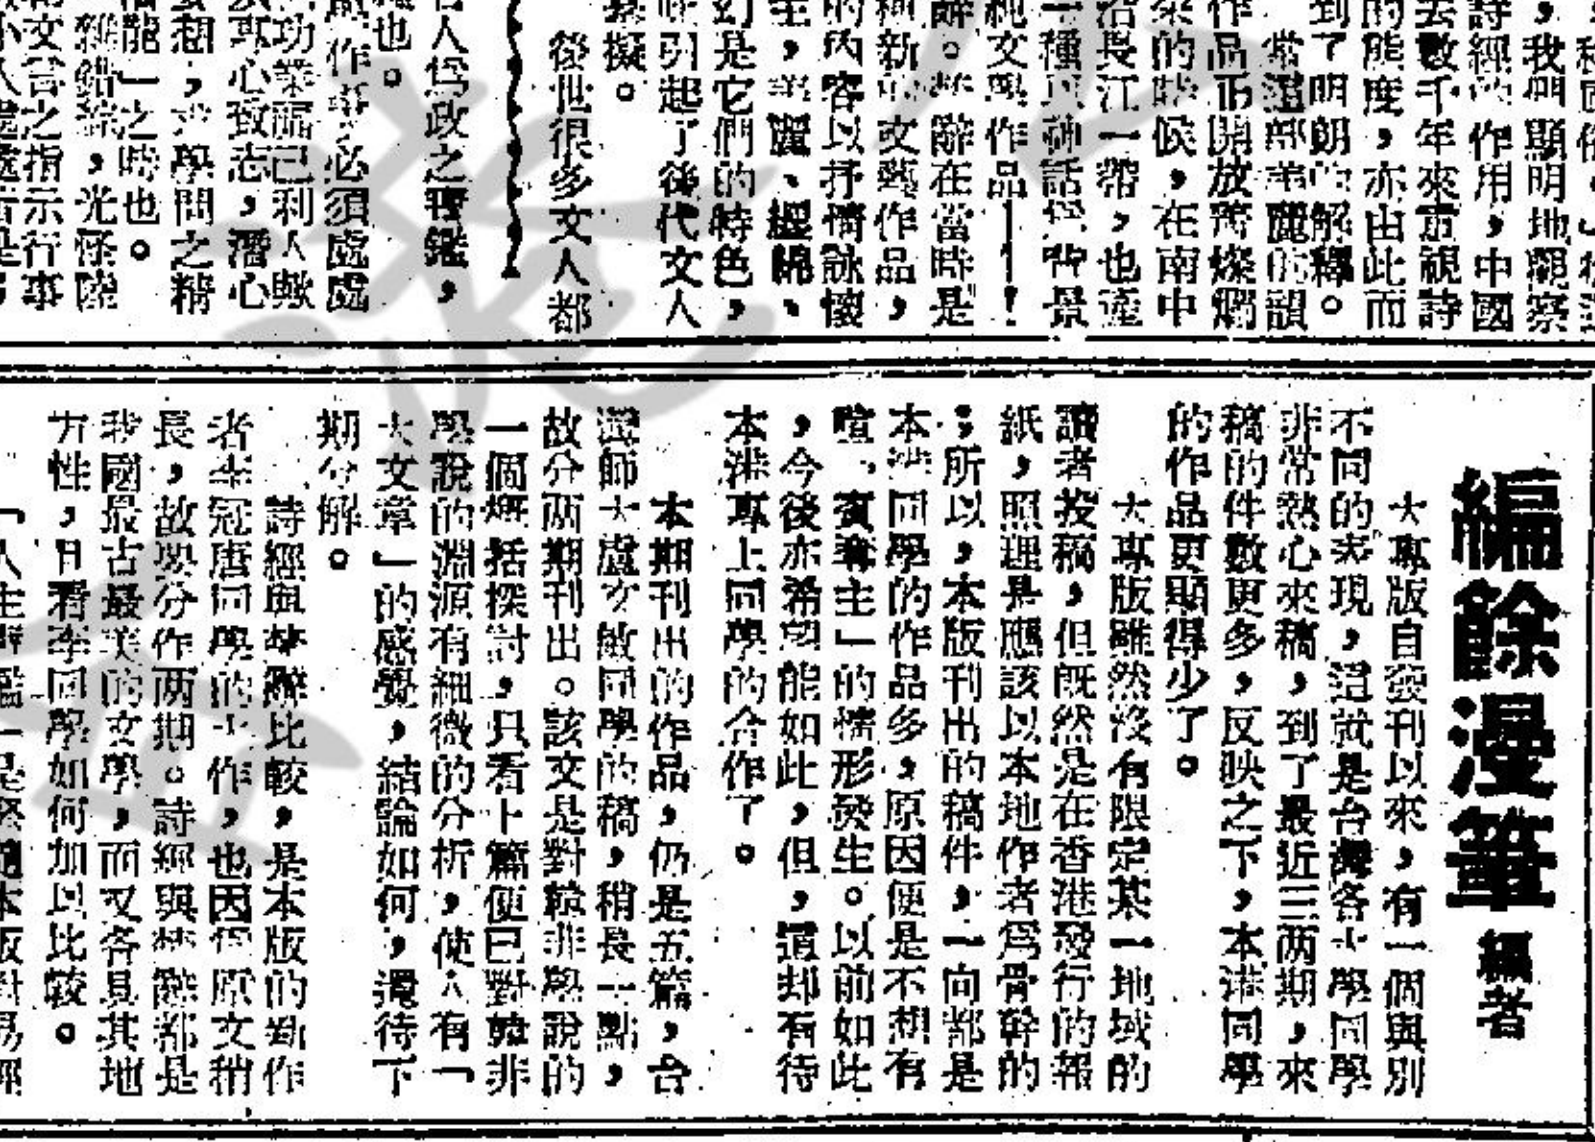 ，我們顯明地觀察
詩經的作用，中國
去數千年來重視詩
的態度，亦由此而
到了明朗的解釋。
麗的韻
作品正開放着燦爛
的時候，在南中
沿長江一帶，也產
一種以神話爲背景
視文學作品——！
辭。楚辭在當時是
種新的文藝作品，
的內容以抒情詠懷
主，美麗、纏綿、
幻是它們的特色，
引起了後代文人
擬。
後世很多文人都
人爲政之寶鑑，
也。
作事必須處處
功業福己利人歟
專心致志，潛心
想，求學問之精
龍」之時也。
雜錯綜，光怪陸
文言之指示行事
編餘漫筆
編者
大專版自發刊以來，有一個與別
不同的表現，這就是台灣各大學同學
非常熱心來稿，到了最近三两期，來
稿的件數更多，反映之下，本港同學
的作品更顯得少了。
大專版雖然沒有限定某一地域的
讀者投稿，但既然是在香港發行的報
紙，照理是應該以本地作者爲骨幹的
；所以，本版刊出的稿件，一向都是
本港同學的作品多，原因便是不想有
喧「賓奪主」的情形發生。以前如此
，今後亦希望能如此，但，這却有待
本港專上同學的合作了。
本期刊出的作品，仍是五篇，台
灣師大盧文敏同學的稿，稍長一點，
故分两期刊出。該文是對韓非學說的
一個概括探討，只看上篇便已對韓非
學說的淵源有細微的分析，使人有「
大文章」的感覺，結論如何，還待下
期分解。
詩經與楚辭比較，是本版的新作
者李冠唐同學的大作，也因爲原文稍
長，故要分作两期。詩經與楚辭都是
我國最古最美的文學，而又各具其地
方性，且看李同學如何加以比較。